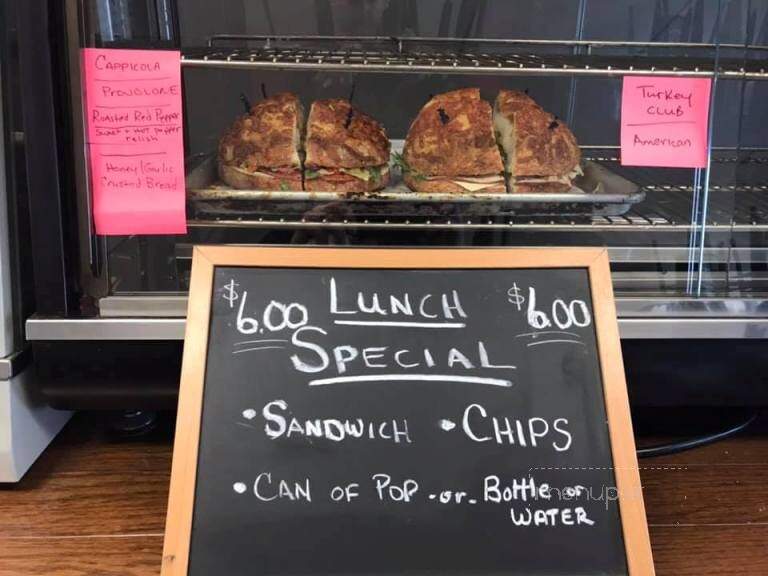 CAPPICOLA
PROVOLONE
Roasted Red Pepper
Sweet + Hot pepper
relish
Honey/Garlic
Crusted Bread
Turkey
CLUB
American
$6.00 LUNCH $6.00
SPECIAL
• SANDWICH • CHIPS
• CAN OF POP -or- Bottle of
WATER
menupix